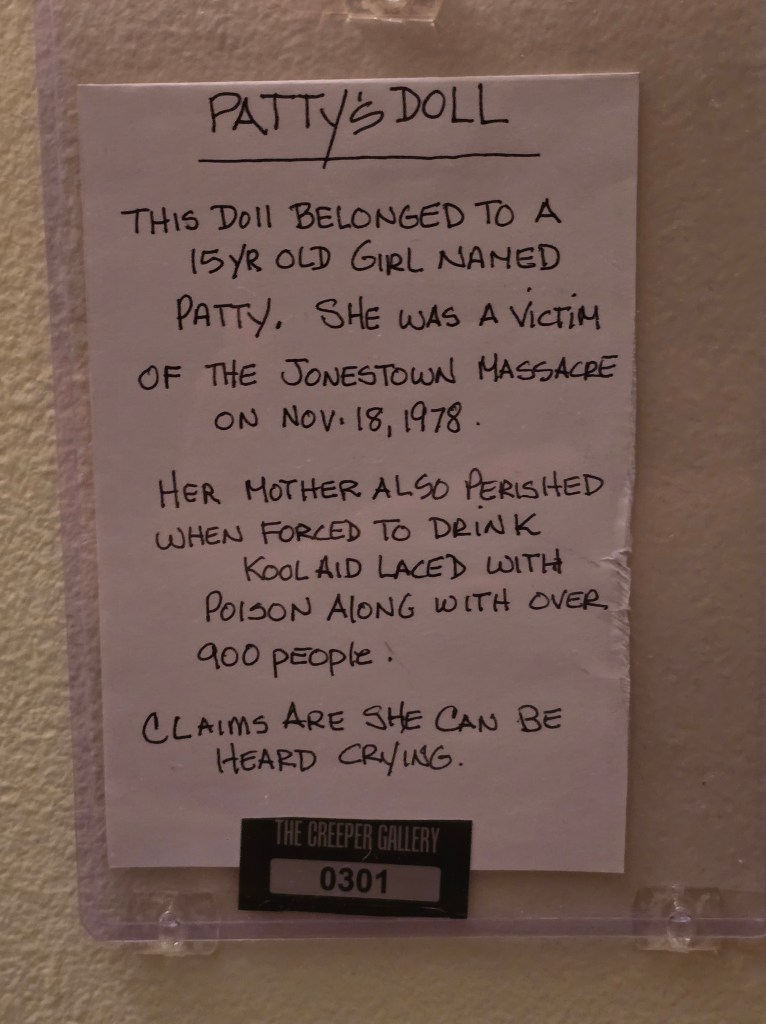 PATTY'S DOLL
THIS DOll BELONGED TO A
15YR OLD GIRL NAMED
PATTY. SHE WAS A VICTIM
OF THE JONESTOWN MASSACRE
ON NOV. 18, 1978.
HER MOTHER ALSO PERISHED
WHEN FORCED TO DRINK
KOOL AID LACED WITH
POISON ALONG WITH OVER
900 PEOPlE.
CLAIMS ARE SHE CAN BE
HEARD CRYING.
THE CREEPER GALLERY
0301